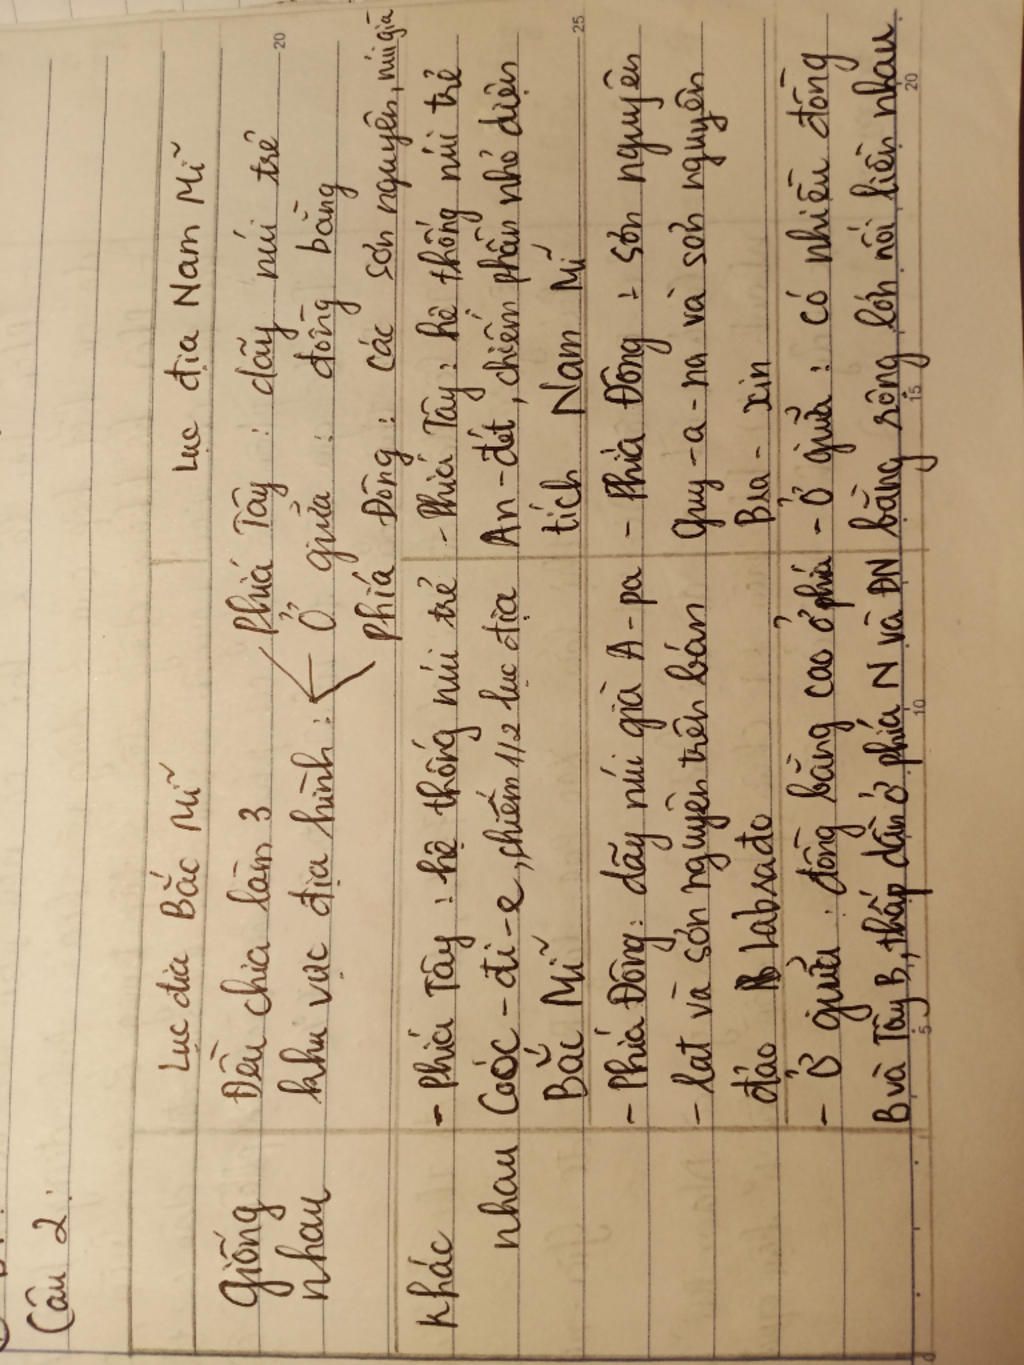 Câu 2:
Lục địa Bắc Mĩ
Lục địa Nam Mĩ
Giống
nhau
Đều chia làm 3
khu vực địa hình:
Phía Tây : dãy núi trẻ
Ở giữa : đồng bằng
Phía Đông : các sơn nguyên, núi già
Khác
nhau
- Phía Tây : hệ thống núi trẻ
Coóc-đi-e, chiếm 1/2 lục địa
Bắc Mĩ
- Phía Tây : hệ thống núi trẻ
An-đét, chiếm phần nhỏ diện
tích Nam Mĩ
- Phía Đông: dãy núi già A-pa
- lat và sơn nguyên trên bán
đảo Labrado
- Phía Đông : sơn nguyên
Guy-a-na và sơn nguyên
Bra-xin
- Ở giữa : đồng bằng cao ở phía
B và Tây B, thấp dần ở phía N và ĐN
- Ở giữa : có nhiều đồng
bằng sông lớn nối liền nhau
20
25
5
10
15
20